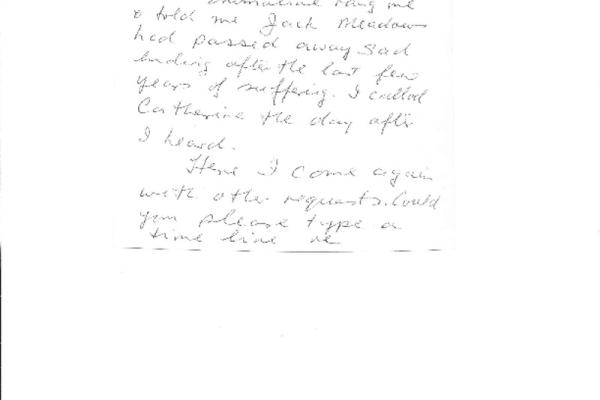 rang me
& told me Jack Meadows
had passed away Sad
ending after the last few
years of suffering. I called
Catherine the day after
I heard.
Here I come again
with other requests. Could
you please type a
time line re